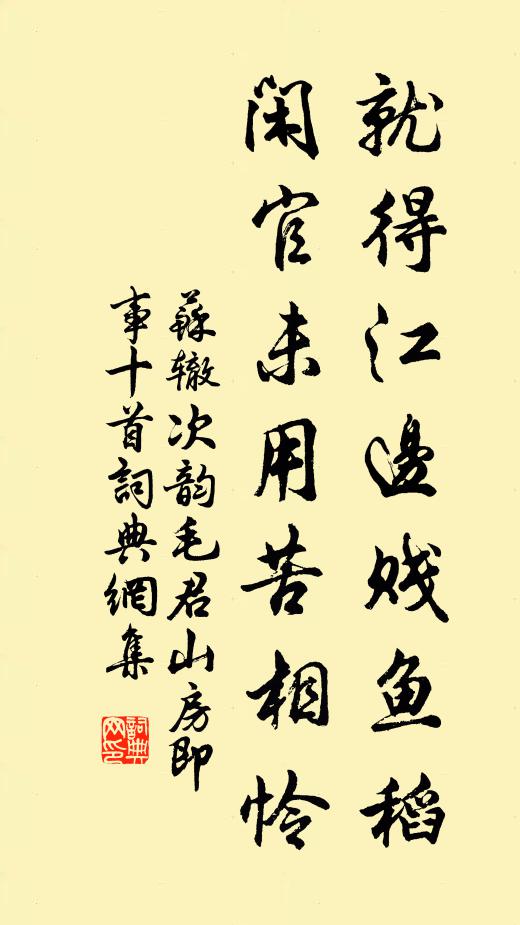 就得江邊贱鱼稻
閑官未用苦相怜
蘇辙次韵毛君山房即
事十首詞典網集
詞典网印